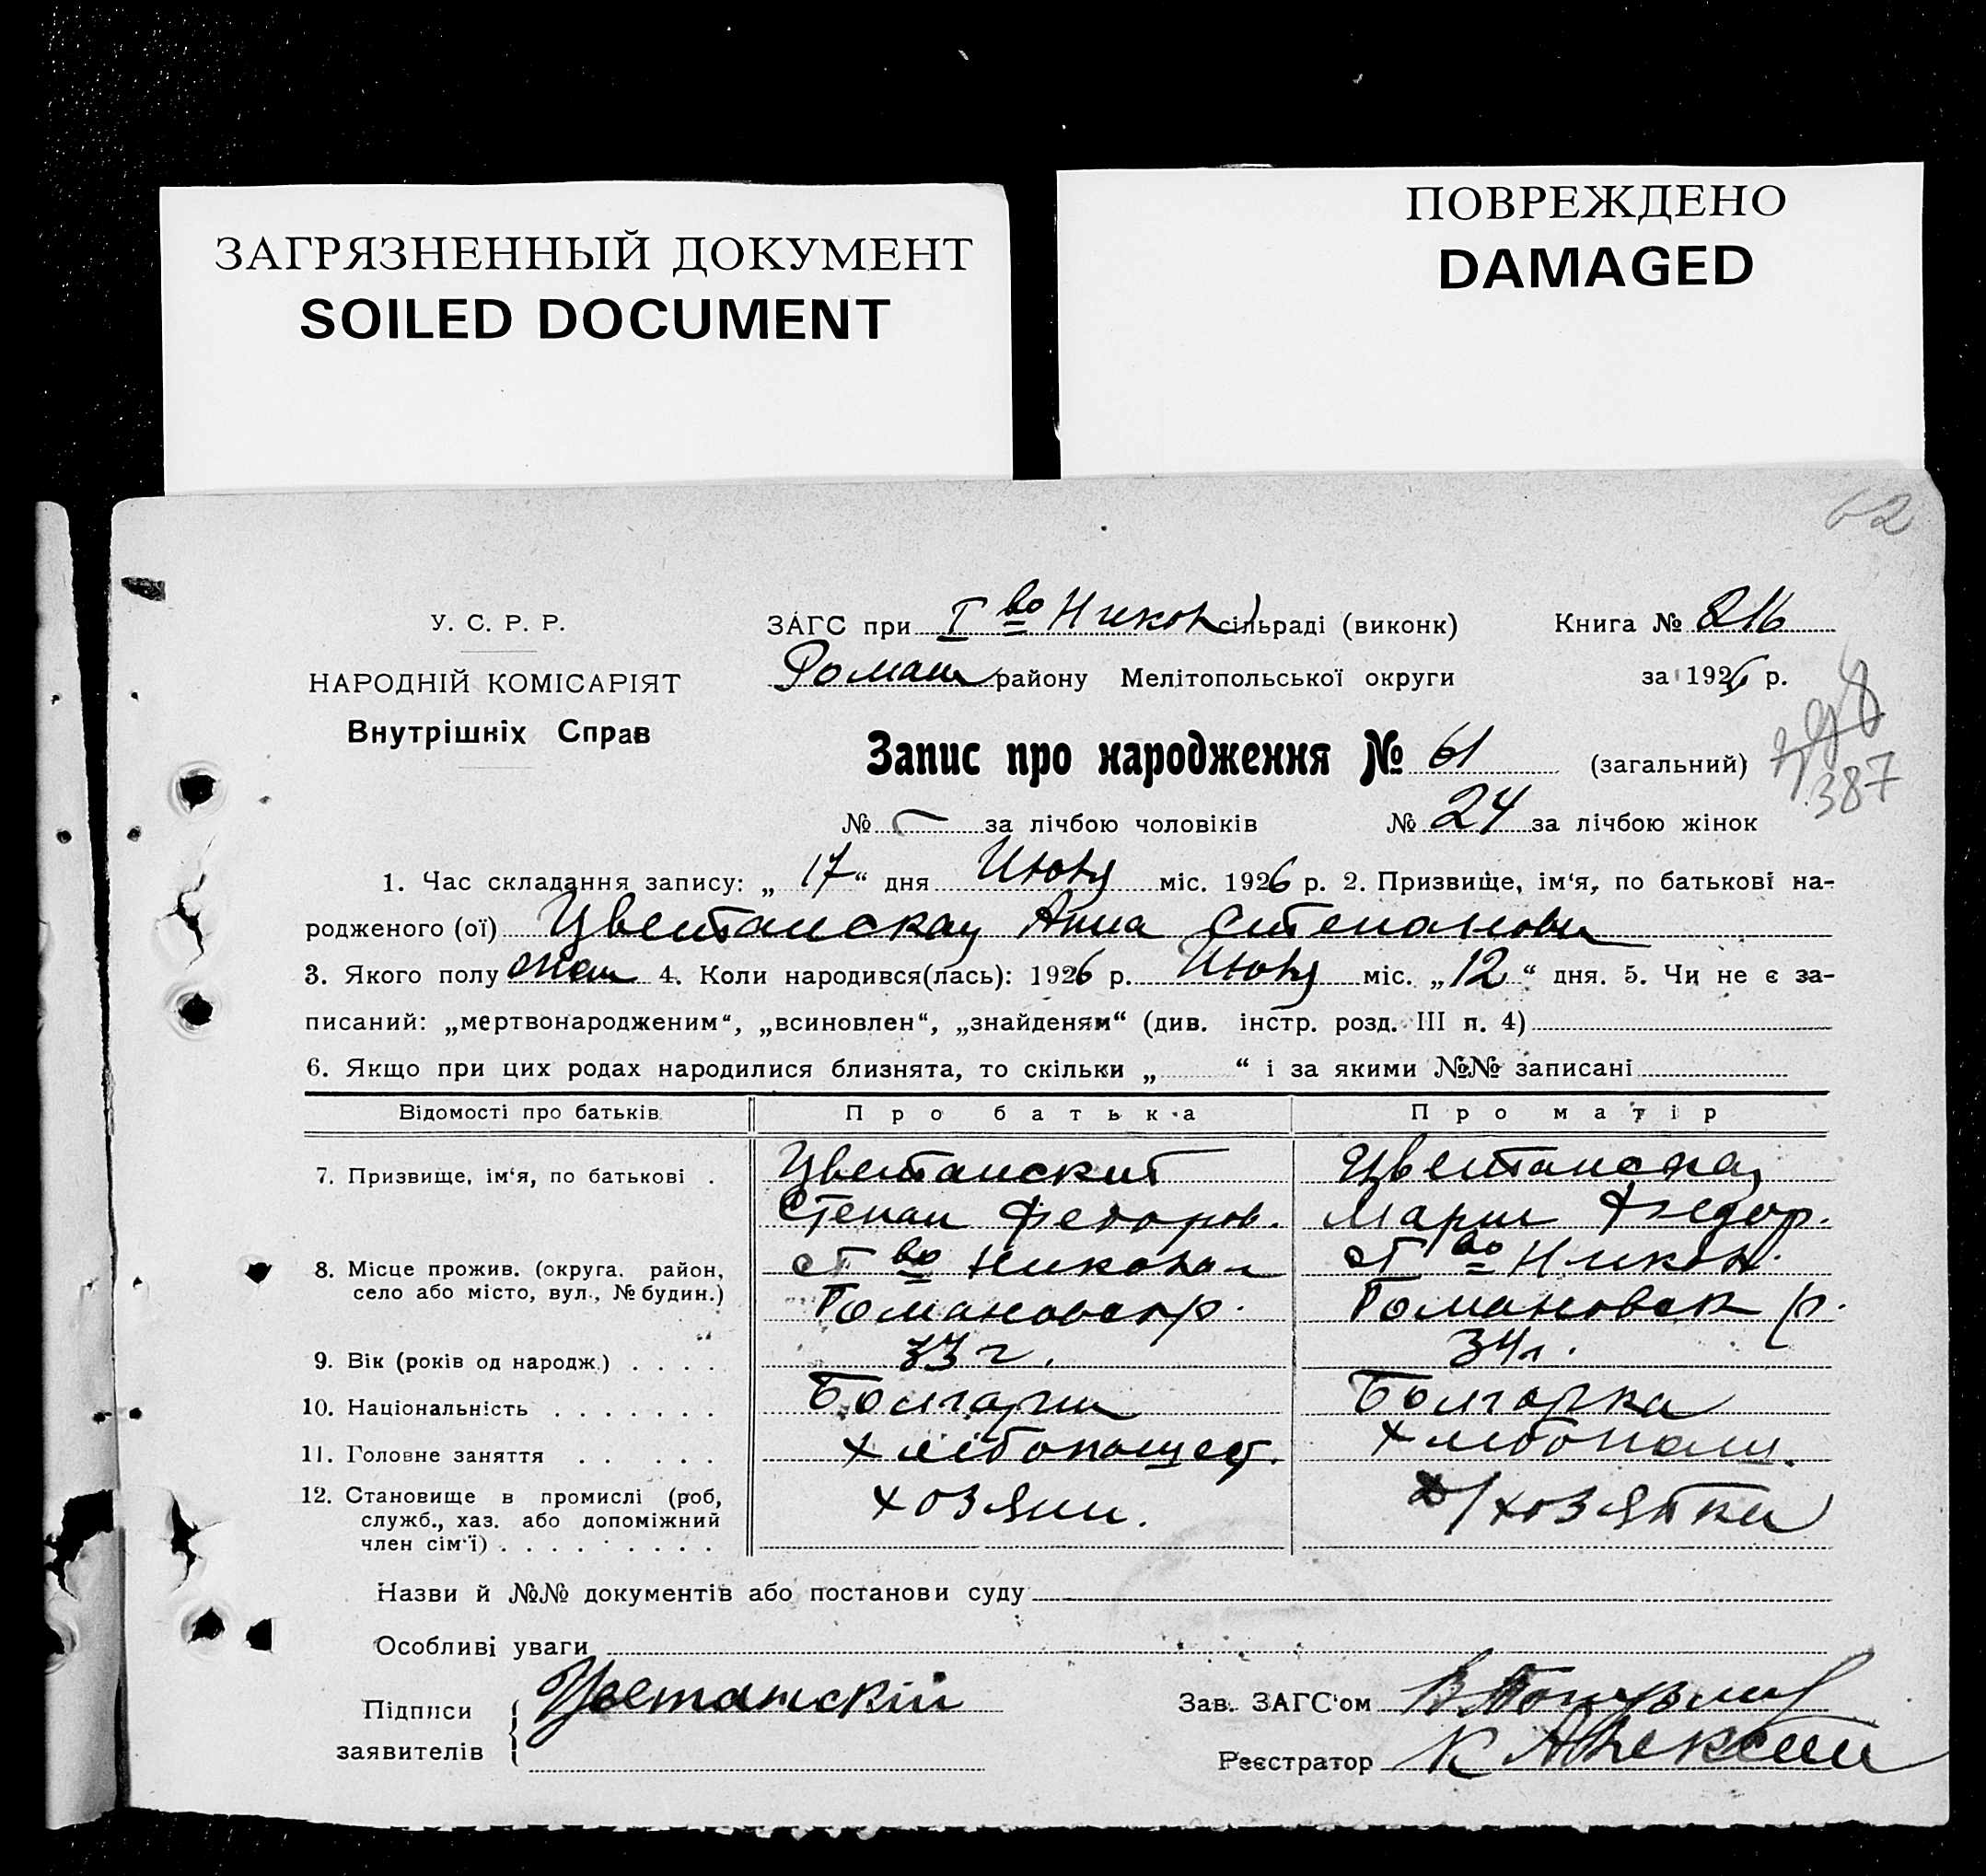 ЗАГРЯЗНЕННЫЙ ДОКУМЕНТ
SOILED DOCUMENT
ПОВРЕЖДЕНО
DAMAGED
62
У. С. Р. Р.
НАРОДНІЙ КОМІСАРІЯТ
Внутрішніх Справ
ЗАГС при I во Никон сільраді (виконк) Книга № 216
Роман району Мелітопольської округи за 1926 р.
Запис про народження № 61 (загальний)
387
№ за лічбою чоловіків № 24 за лічбою жінок
1. Час складання запису: „ 17 “ дня Июня міс. 1926 р. 2. Призвище, ім'я, по батькові на-
родженого (ої) Цветанская Анна Степанови
3. Якого полу жен 4. Коли народився(лась): 1926 р. Июня міс. „ 12 “ дня. 5. Чи не є за-
писаний: „мертвонародженим“, „всиновлен“, „знайденям“ (див. інстр. розд. III п. 4)
6. Якщо при цих родах народилися близнята, то скільки „ “ і за якими №№ записані
Відомості про батьків Про батька Про матір
7. Призвище, ім'я, по батькові . Цветанский Цветанская
Степан Федоров. Мария Федор.
8. Місце прожив. (округа, район, во Никонал во Никон.
село або місто, вул., № будин.) Романовск р. Романовск р.
9. Вік (років од народж.) . . . . . 33 г. 34 г.
10. Національність . . . . . . . Болгарин Болгарка
11. Головне заняття . . . . . Хлебопащец. Хлебопащ.
12. Становище в промислі (роб, хозяин. д/хозяйка
служб., хаз. або допоміжний
член сім'ї) . . . . . . . . .
Назви й №№ документів або постанови суду
Особливі уваги
Підписи Цветанскій Зав. ЗАГС'ом
заявителів Реєстратор К